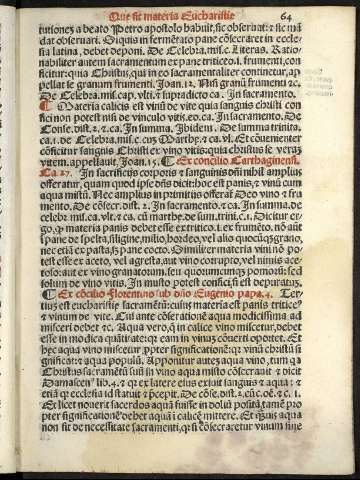 Que sit materia Eucharistie 64
tutionez a beato Petro apostolo habuit, sic obseruat: & sic mādat obseruari. Siquis in fermētato pane cōsecraret in ecclesia latina, debet deponi. De Celebra. mis. c. Literas. Rationabiliter autem sacramentum ex pane tritico. i. frumenti, conficitur: quia Christus, qui in eo sacramentaliter continetur, appellat se granum frumenti. Joan. 12. Nisi granū frumēti &c.
De Celebra. mis. cap. vlt. & supra dicto ca. In sacramento.
¶ Materia calicis est vinū de vite quia sanguis christi confici non potest nisi de vinculo vitis. eo. ca. In sacramento. De Conse. dist. 2. & ca. In summa. Ibidem. De summa trinita.
ca. 1. de Celebra. mis. c. cum Marthę. & ca. vl. Et cōuenienter cōficitur sanguis Christi ex vino vitis: quia christus se veraz vitem. appellauit. Joan. 15. ¶ Ex concilio Carthaginensi.
Ca. 27. In sacrificijs corporis & sanguinis dñi nihil amplius offeratur, quam quod ipse dñs dicit: hoc est panis, & vinū cum aqua mistū. Nec amplius in primitijs offerat Deo vino & frumento. De cōsecr. dist. 2. In sacramento. & ca. In summa. de celebr. mis. ca. vlt. & ca. cū marthę. de sum. trini. c. 1. Dicitur ergo, qz materia panis debet esse ex tritico. i. ex frumēto, nō autē pane de spelta, siligine, milio, hordeo, vel alio quocūqz grano,
nec etiā ex pasta, sz pane cocto. Similiter materia vini nō potest esse ex aceto, vel agresta, aut vino corrupto, vel nimis acetoso: aut ex vino granatorum. seu quorumcunqz pomorū: sed solum de vino vitis. In musto potest confici, si est depuratuz.
¶ Ex cōcilio Florentino sub dño Eugenio papa. 4. Tertius est eucharistię sacramētū: cuius materia est panis triticeꝰ & vinum de vite. Cui ante cōseratiōnē aqua modicissima admisceri debet &c. Aqua vero, q̄ in calice vino miscetur, debet esse in modica quātitate: qz eam in vinuz cōuerti oportet. Et hęc aqua vino miscetur ppter significationē: qz vinū christū significat: & aqua populū. Apponitur autez aqua vino, tum qz Christus sacramētū suū in vino aqua misto cōsecrauit & dicit Damascenꝰ lib. 4. & qz ex latere eius exiuit sanguis & aqua: & etiā qz ecclesia id statuit & pręcepit. De cōse. dist. 2. cū: oē. & c. 1.
Et licet nouerit sacerdos aquā fuisse in dolijs positā, tamē propter significationē debet aquā i calice mittere. Et qz uis aqua non sit de necessitate sacramenti, qz si cōsecraretur vinum sine